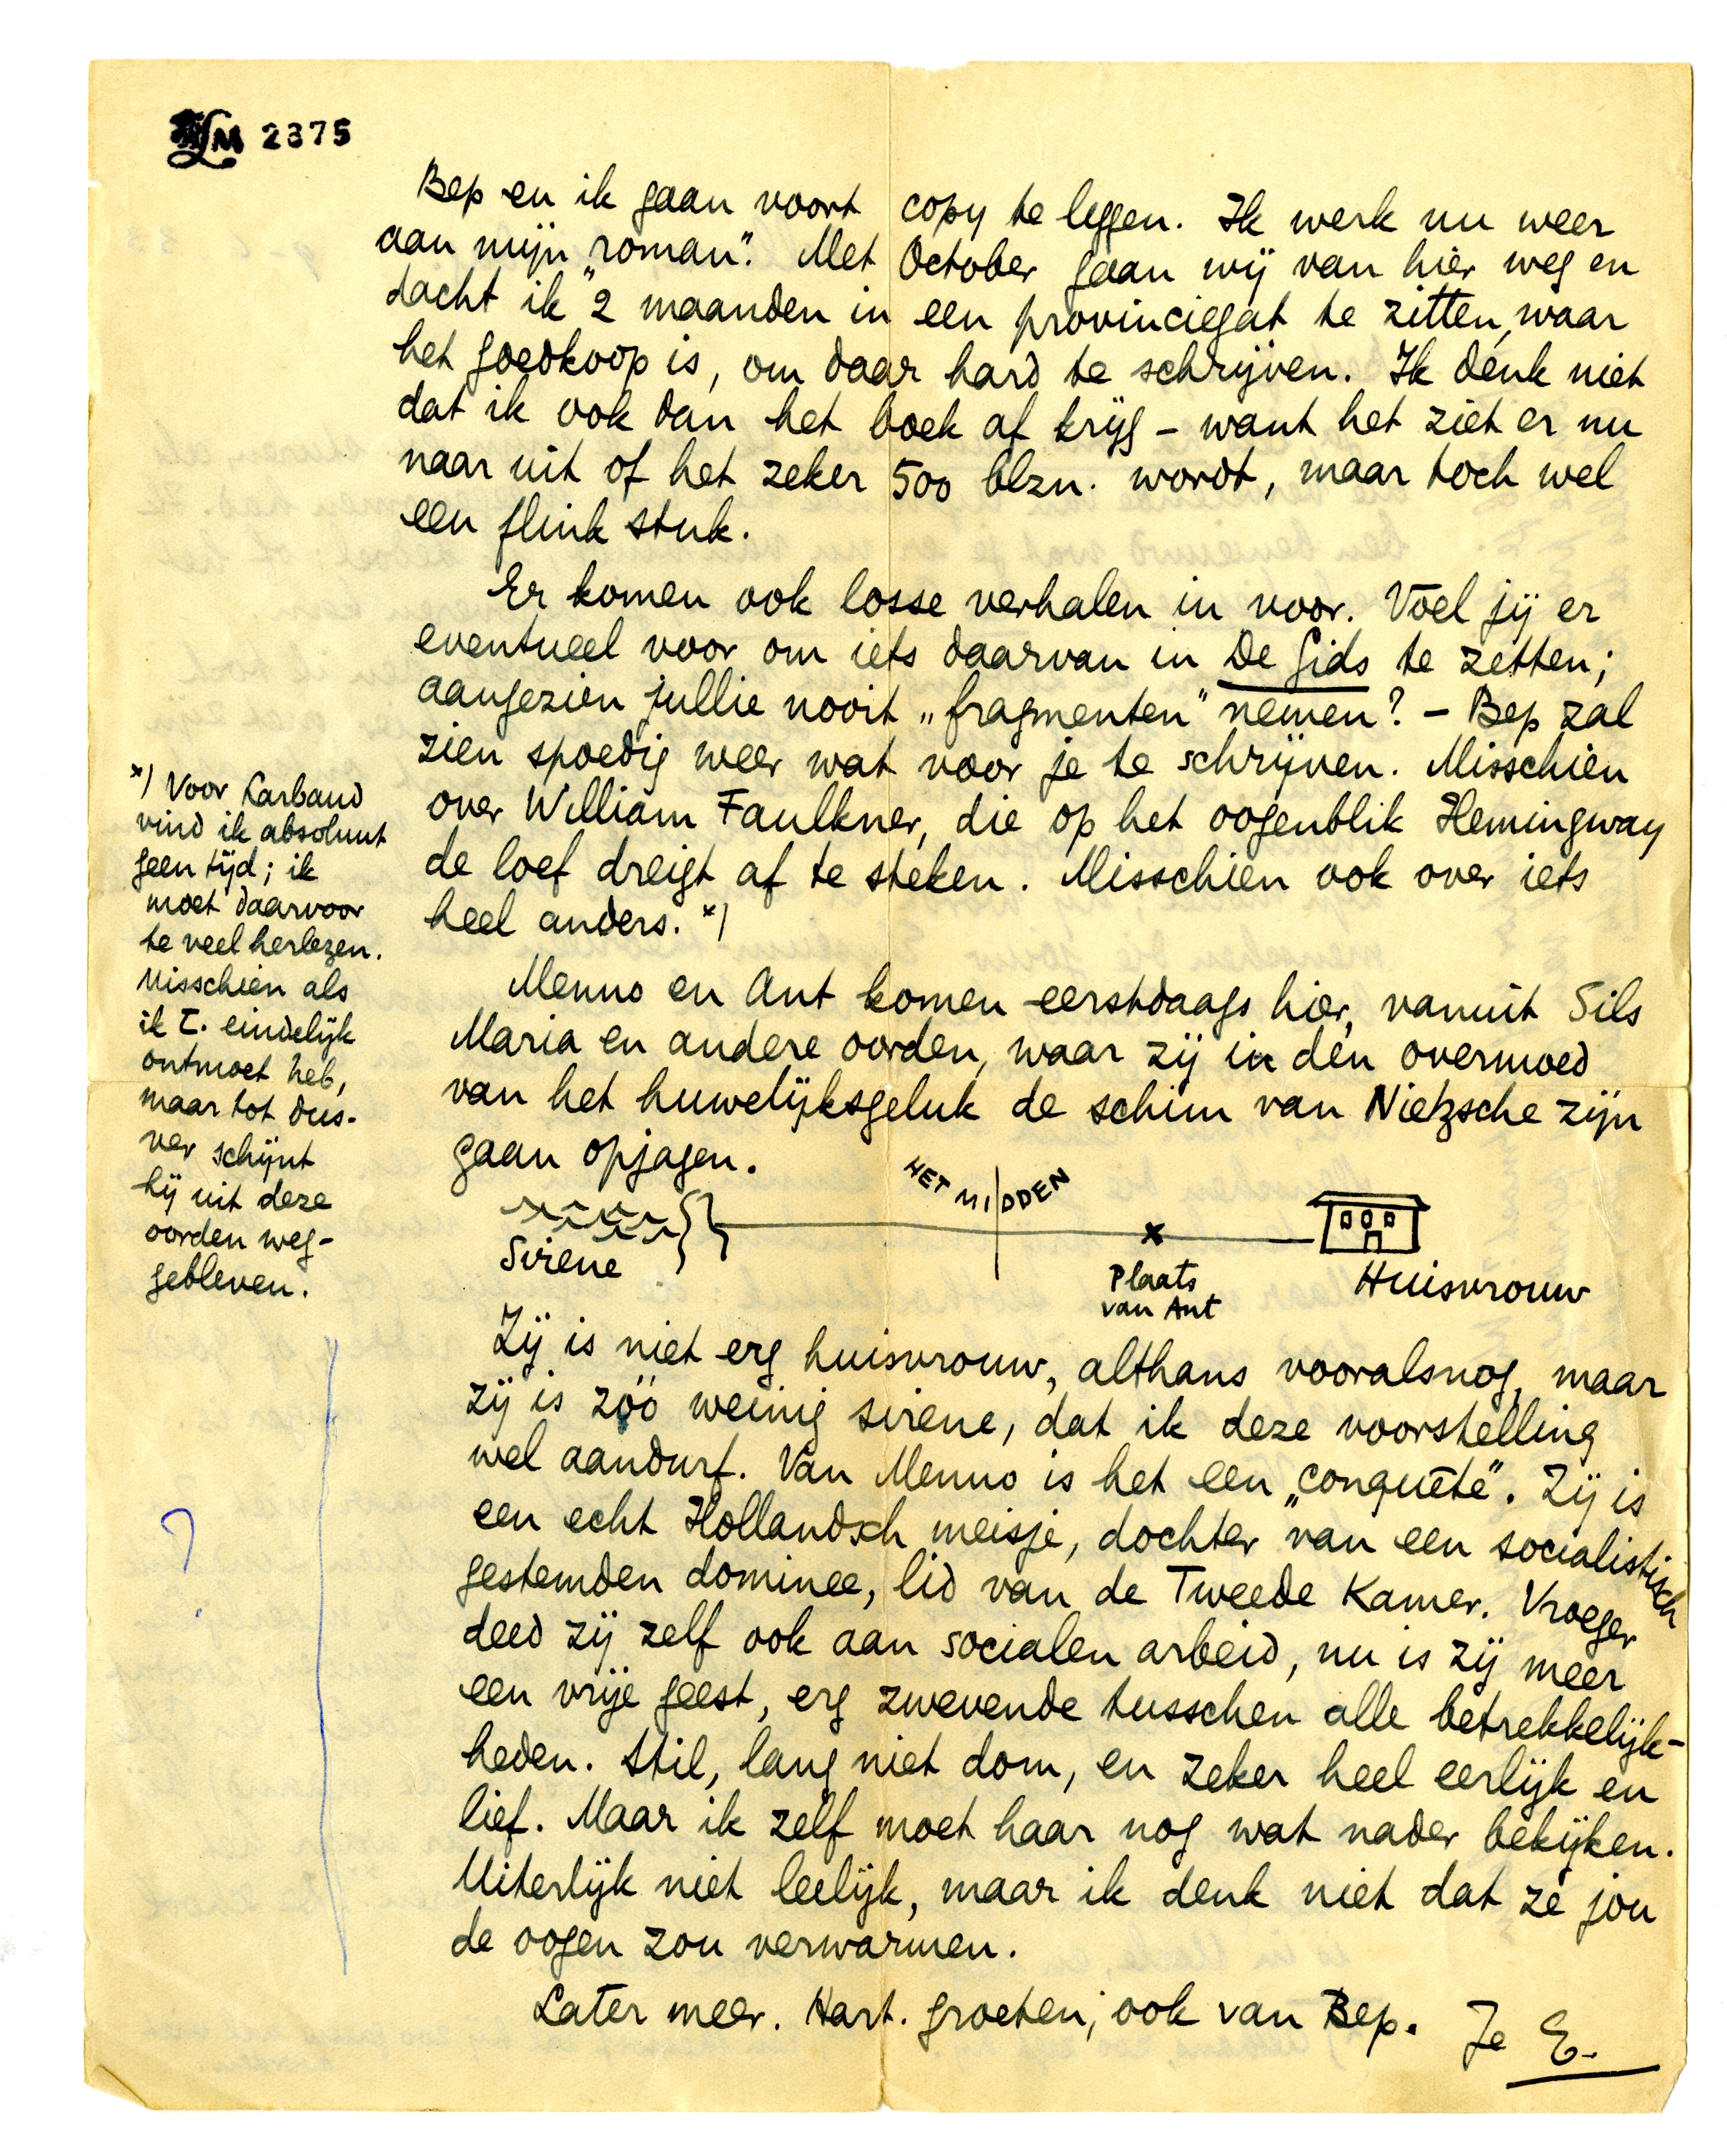 LM 2375
Bep en ik gaan voort copy te leggen. Ik werk nu weer
aan mijn „roman". Met October gaan wij van hier weg en
dacht ik 2 maanden in een provinciegat te zitten, waar
het goedkoop is, om daar hard te schrijven. Ik denk niet
dat ik ook dan het boek af krijg – want het ziet er nu
naar uit of het zeker 500 blzn. wordt, maar toch wel
een flink stuk.
Er komen ook losse verhalen in voor. Voel jij er
eventueel voor om iets daarvan in De Gids te zetten;
aangezien jullie nooit „fragmenten" nemen? – Bep zal
zien spoedig weer wat voor je te schrijven. Misschien
over William Faulkner, die op het oogenblik Hemingway
de loef dreigt af te steken. Misschien ook over iets
heel anders. *)
*) Voor Larbaud
vind ik absoluut
geen tijd; ik
moet daarvoor
te veel herlezen.
Misschien als
ik L. eindelijk
ontmoet heb,
maar tot dus-
ver schijnt
hij uit deze
oorden weg-
gebleven.
Menno en Ant komen eerstdaags hier, vanuit Sils
Maria en andere oorden, waar zij in den overmoed
van het huwelijksgeluk de schim van Nietzsche zijn
gaan opjagen.
HET MIDDEN
Sirene
Plaats
van Ant
Huisvrouw
Zij is niet erg huisvrouw, althans vooralsnog, maar
zij is zóó weinig sirene, dat ik deze voorstelling
wel aandurf. Van Menno is het een „conquête". Zij is
een echt Hollandsch meisje, dochter van een socialistisch
gestemden dominee, lid van de Tweede Kamer. Vroeger
deed zij zelf ook aan socialen arbeid, nu is zij meer
een vrije geest, erg zwevende tusschen alle betrekkelijk-
heden. Stil, lang niet dom, en zeker heel eerlijk en
lief. Maar ik zelf moet haar nog wat nader bekijken.
Uiterlijk niet leelijk, maar ik denk niet dat ze jou
de oogen zou verwarmen.
?
Later meer. Hart. groeten, ook van Bep. Je E.